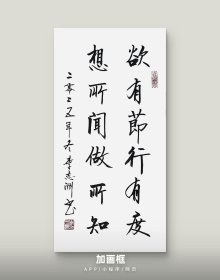 欲有節行有度
想所闻做所知
二零二五年冬李志洲书
加画框
APP/小程序/网页